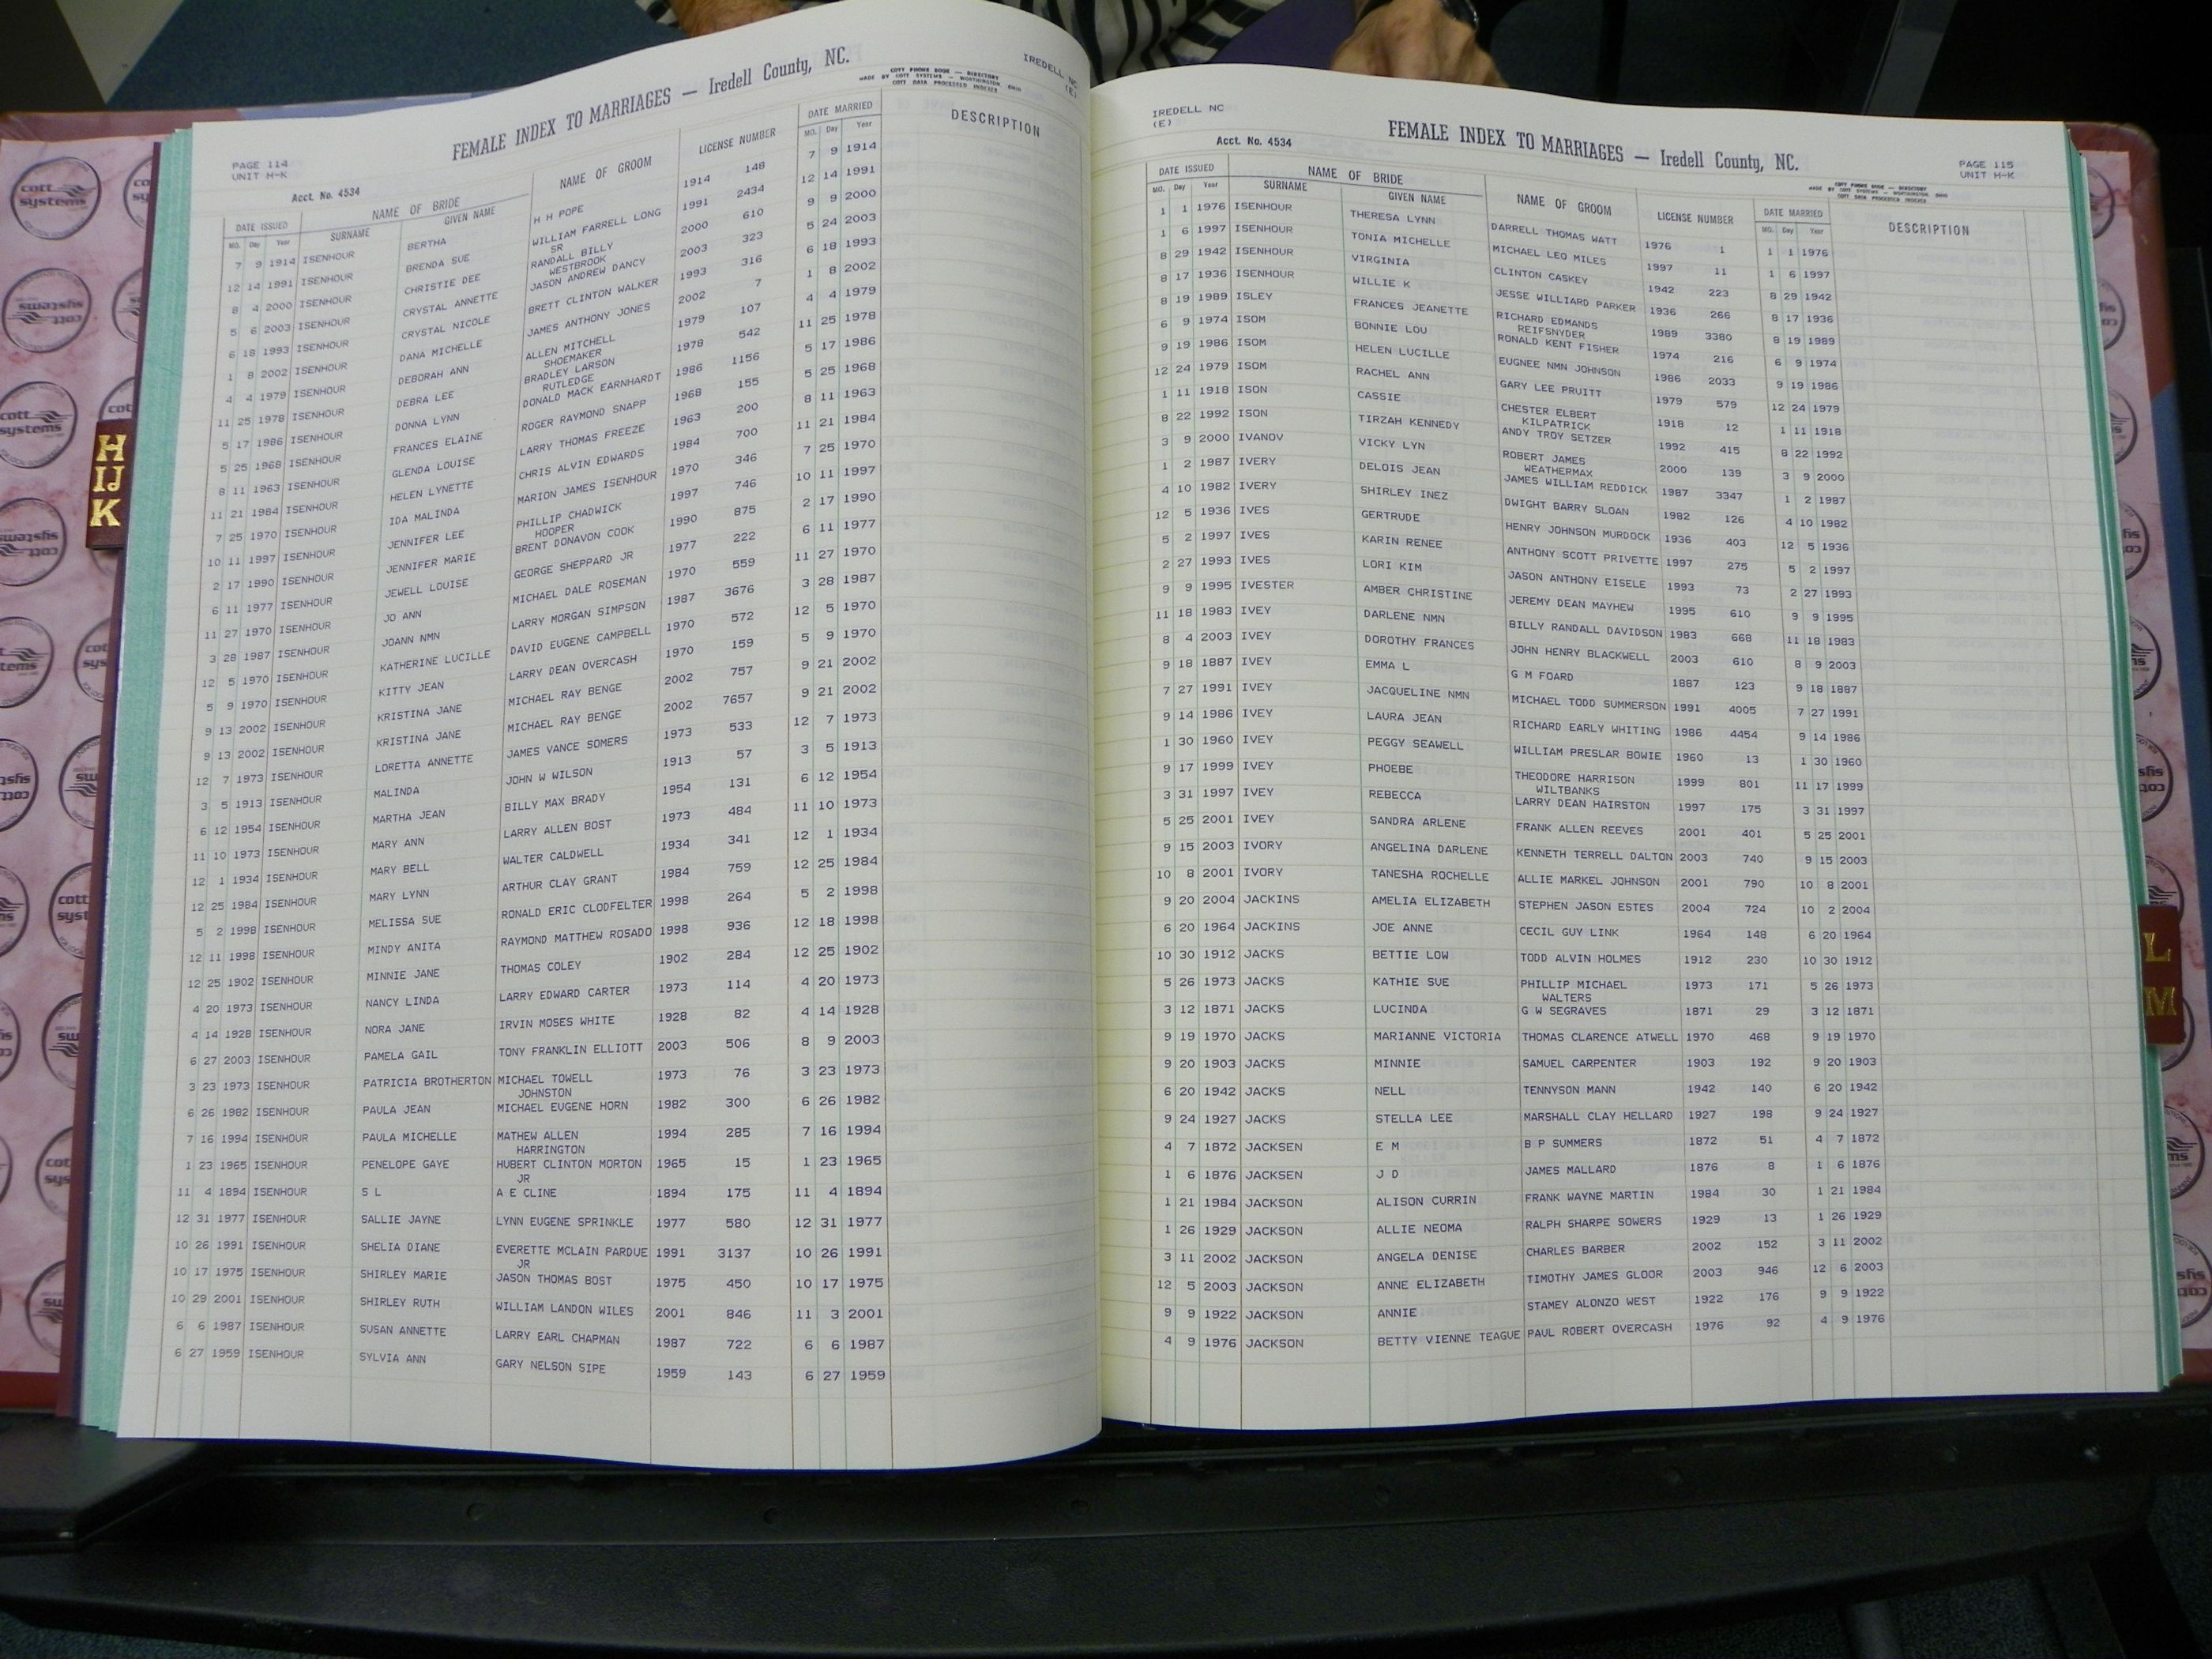 IREDELL NC
(E)
FEMALE INDEX TO MARRIAGES — Iredell County, NC.
COTT FORMS BOOK — DIRECTORY
MADE BY COTT SYSTEMS — WORTHINGTON OHIO
COTT DATA PROCESSED INDEXES
PAGE 114
UNIT H-K
Acct. No. 4534
DATE ISSUED NAME OF BRIDE NAME OF GROOM LICENSE NUMBER DATE MARRIED DESCRIPTION
MO. Day Year SURNAME GIVEN NAME MO. Day Year
7 9 1914 ISENHOUR BERTHA H H POPE 1914 148 7 9 1914
12 14 1991 ISENHOUR BRENDA SUE WILLIAM FARRELL LONG 1991 2434 12 14 1991
SR
8 4 2000 ISENHOUR CHRISTIE DEE RANDALL BILLY 2000 610 9 9 2000
WESTBROOK
5 6 2003 ISENHOUR CRYSTAL ANNETTE JASON ANDREW DANCY 2003 323 5 24 2003
6 18 1993 ISENHOUR CRYSTAL NICOLE BRETT CLINTON WALKER 1993 316 6 18 1993
1 8 2002 ISENHOUR DANA MICHELLE JAMES ANTHONY JONES 2002 7 1 8 2002
4 4 1979 ISENHOUR DEBORAH ANN ALLEN MITCHELL 1979 107 4 4 1979
SHOEMAKER
11 25 1978 ISENHOUR DEBRA LEE BRADLEY LARSON 1978 542 11 25 1978
RUTLEDGE
5 17 1986 ISENHOUR DONNA LYNN DONALD MACK EARNHARDT 1986 1156 5 17 1986
5 25 1968 ISENHOUR FRANCES ELAINE ROGER RAYMOND SNAPP 1968 155 5 25 1968
8 11 1963 ISENHOUR GLENDA LOUISE LARRY THOMAS FREEZE 1963 200 8 11 1963
11 21 1984 ISENHOUR HELEN LYNETTE CHRIS ALVIN EDWARDS 1984 700 11 21 1984
7 25 1970 ISENHOUR IDA MALINDA MARION JAMES ISENHOUR 1970 346 7 25 1970
10 11 1997 ISENHOUR JENNIFER LEE PHILLIP CHADWICK 1997 746 10 11 1997
HOOPER
2 17 1990 ISENHOUR JENNIFER MARIE BRENT DONAVON COOK 1990 875 2 17 1990
6 11 1977 ISENHOUR JEWELL LOUISE GEORGE SHEPPARD JR 1977 222 6 11 1977
11 27 1970 ISENHOUR JO ANN MICHAEL DALE ROSEMAN 1970 559 11 27 1970
3 28 1987 ISENHOUR JOANN NMN LARRY MORGAN SIMPSON 1987 3676 3 28 1987
12 5 1970 ISENHOUR KATHERINE LUCILLE DAVID EUGENE CAMPBELL 1970 572 12 5 1970
5 9 1970 ISENHOUR KITTY JEAN LARRY DEAN OVERCASH 1970 159 5 9 1970
9 13 2002 ISENHOUR KRISTINA JANE MICHAEL RAY BENGE 2002 757 9 21 2002
9 13 2002 ISENHOUR KRISTINA JANE MICHAEL RAY BENGE 2002 7657 9 21 2002
12 7 1973 ISENHOUR LORETTA ANNETTE JAMES VANCE SOMERS 1973 533 12 7 1973
3 5 1913 ISENHOUR MALINDA JOHN W WILSON 1913 57 3 5 1913
6 12 1954 ISENHOUR MARTHA JEAN BILLY MAX BRADY 1954 131 6 12 1954
11 10 1973 ISENHOUR MARY ANN LARRY ALLEN BOST 1973 484 11 10 1973
12 1 1934 ISENHOUR MARY BELL WALTER CALDWELL 1934 341 12 1 1934
12 25 1984 ISENHOUR MARY LYNN ARTHUR CLAY GRANT 1984 759 12 25 1984
5 2 1998 ISENHOUR MELISSA SUE RONALD ERIC CLODFELTER 1998 264 5 2 1998
12 11 1998 ISENHOUR MINDY ANITA RAYMOND MATTHEW ROSADO 1998 936 12 18 1998
12 25 1902 ISENHOUR MINNIE JANE THOMAS COLEY 1902 284 12 25 1902
4 20 1973 ISENHOUR NANCY LINDA LARRY EDWARD CARTER 1973 114 4 20 1973
4 14 1928 ISENHOUR NORA JANE IRVIN MOSES WHITE 1928 82 4 14 1928
6 27 2003 ISENHOUR PAMELA GAIL TONY FRANKLIN ELLIOTT 2003 506 8 9 2003
3 23 1973 ISENHOUR PATRICIA BROTHERTON MICHAEL TOWELL 1973 76 3 23 1973
JOHNSTON
6 26 1982 ISENHOUR PAULA JEAN MICHAEL EUGENE HORN 1982 300 6 26 1982
7 16 1994 ISENHOUR PAULA MICHELLE MATHEW ALLEN 1994 285 7 16 1994
HARRINGTON
1 23 1965 ISENHOUR PENELOPE GAYE HUBERT CLINTON MORTON 1965 15 1 23 1965
JR
11 4 1894 ISENHOUR S L A E CLINE 1894 175 11 4 1894
12 31 1977 ISENHOUR SALLIE JAYNE LYNN EUGENE SPRINKLE 1977 580 12 31 1977
10 26 1991 ISENHOUR SHELIA DIANE EVERETTE MCLAIN PARDUE 1991 3137 10 26 1991
JR
10 17 1975 ISENHOUR SHIRLEY MARIE JASON THOMAS BOST 1975 450 10 17 1975
10 29 2001 ISENHOUR SHIRLEY RUTH WILLIAM LANDON WILES 2001 846 11 3 2001
6 6 1987 ISENHOUR SUSAN ANNETTE LARRY EARL CHAPMAN 1987 722 6 6 1987
6 27 1959 ISENHOUR SYLVIA ANN GARY NELSON SIPE 1959 143 6 27 1959
IREDELL NC
(E)
FEMALE INDEX TO MARRIAGES — Iredell County, NC.
Acct. No. 4534
PAGE 115
UNIT H-K
COTT FORMS BOOK — DIRECTORY
MADE BY COTT SYSTEMS — WORTHINGTON OHIO
COTT DATA PROCESSED INDEXES
DATE ISSUED NAME OF BRIDE NAME OF GROOM LICENSE NUMBER DATE MARRIED DESCRIPTION
MO. Day Year SURNAME GIVEN NAME MO. Day Year
1 1 1976 ISENHOUR THERESA LYNN DARRELL THOMAS WATT 1976 1 1 1 1976
1 6 1997 ISENHOUR TONIA MICHELLE MICHAEL LEO MILES 1997 11 1 6 1997
8 29 1942 ISENHOUR VIRGINIA CLINTON CASKEY 1942 223 8 29 1942
8 17 1936 ISENHOUR WILLIE K JESSE WILLIARD PARKER 1936 266 8 17 1936
8 19 1989 ISLEY FRANCES JEANETTE RICHARD EDMANDS 1989 3380 8 19 1989
REIFSNYDER
6 9 1974 ISOM BONNIE LOU RONALD KENT FISHER 1974 216 6 9 1974
9 19 1986 ISOM HELEN LUCILLE EUGNEE NMN JOHNSON 1986 2033 9 19 1986
12 24 1979 ISOM RACHEL ANN GARY LEE PRUITT 1979 579 12 24 1979
1 11 1918 ISON CASSIE CHESTER ELBERT 1918 12 1 11 1918
KILPATRICK
8 22 1992 ISON TIRZAH KENNEDY ANDY TROY SETZER 1992 415 8 22 1992
3 9 2000 IVANOV VICKY LYN ROBERT JAMES 2000 139 3 9 2000
WEATHERMAX
1 2 1987 IVERY DELOIS JEAN JAMES WILLIAM REDDICK 1987 3347 1 2 1987
4 10 1982 IVERY SHIRLEY INEZ DWIGHT BARRY SLOAN 1982 126 4 10 1982
12 5 1936 IVES GERTRUDE HENRY JOHNSON MURDOCK 1936 403 12 5 1936
5 2 1997 IVES KARIN RENEE ANTHONY SCOTT PRIVETTE 1997 275 5 2 1997
2 27 1993 IVES LORI KIM JASON ANTHONY EISELE 1993 73 2 27 1993
9 9 1995 IVESTER AMBER CHRISTINE JEREMY DEAN MAYHEW 1995 610 9 9 1995
11 18 1983 IVEY DARLENE NMN BILLY RANDALL DAVIDSON 1983 668 11 18 1983
8 4 2003 IVEY DOROTHY FRANCES JOHN HENRY BLACKWELL 2003 610 8 9 2003
9 18 1887 IVEY EMMA L G M FOARD 1887 123 9 18 1887
7 27 1991 IVEY JACQUELINE NMN MICHAEL TODD SUMMERSON 1991 4005 7 27 1991
9 14 1986 IVEY LAURA JEAN RICHARD EARLY WHITING 1986 4454 9 14 1986
1 30 1960 IVEY PEGGY SEAWELL WILLIAM PRESLAR BOWIE 1960 13 1 30 1960
9 17 1999 IVEY PHOEBE THEODORE HARRISON 1999 801 11 17 1999
WILTBANKS
3 31 1997 IVEY REBECCA LARRY DEAN HAIRSTON 1997 175 3 31 1997
5 25 2001 IVEY SANDRA ARLENE FRANK ALLEN REEVES 2001 401 5 25 2001
9 15 2003 IVORY ANGELINA DARLENE KENNETH TERRELL DALTON 2003 740 9 15 2003
10 8 2001 IVORY TANESHA ROCHELLE ALLIE MARKEL JOHNSON 2001 790 10 8 2001
9 20 2004 JACKINS AMELIA ELIZABETH STEPHEN JASON ESTES 2004 724 10 2 2004
6 20 1964 JACKINS JOE ANNE CECIL GUY LINK 1964 148 6 20 1964
10 30 1912 JACKS BETTIE LOW TODD ALVIN HOLMES 1912 230 10 30 1912
5 26 1973 JACKS KATHIE SUE PHILLIP MICHAEL 1973 171 5 26 1973
WALTERS
3 12 1871 JACKS LUCINDA G W SEGRAVES 1871 29 3 12 1871
9 19 1970 JACKS MARIANNE VICTORIA THOMAS CLARENCE ATWELL 1970 468 9 19 1970
9 20 1903 JACKS MINNIE SAMUEL CARPENTER 1903 192 9 20 1903
6 20 1942 JACKS NELL TENNYSON MANN 1942 140 6 20 1942
9 24 1927 JACKS STELLA LEE MARSHALL CLAY HELLARD 1927 198 9 24 1927
4 7 1872 JACKSEN E M B P SUMMERS 1872 51 4 7 1872
1 6 1876 JACKSEN J D JAMES MALLARD 1876 8 1 6 1876
1 21 1984 JACKSON ALISON CURRIN FRANK WAYNE MARTIN 1984 30 1 21 1984
1 26 1929 JACKSON ALLIE NEOMA RALPH SHARPE SOWERS 1929 13 1 26 1929
3 11 2002 JACKSON ANGELA DENISE CHARLES BARBER 2002 152 3 11 2002
12 5 2003 JACKSON ANNE ELIZABETH TIMOTHY JAMES GLOOR 2003 946 12 6 2003
9 9 1922 JACKSON ANNIE STAMEY ALONZO WEST 1922 176 9 9 1922
4 9 1976 JACKSON BETTY VIENNE TEAGUE PAUL ROBERT OVERCASH 1976 92 4 9 1976
H
IJ
K
L
M
cott
systems